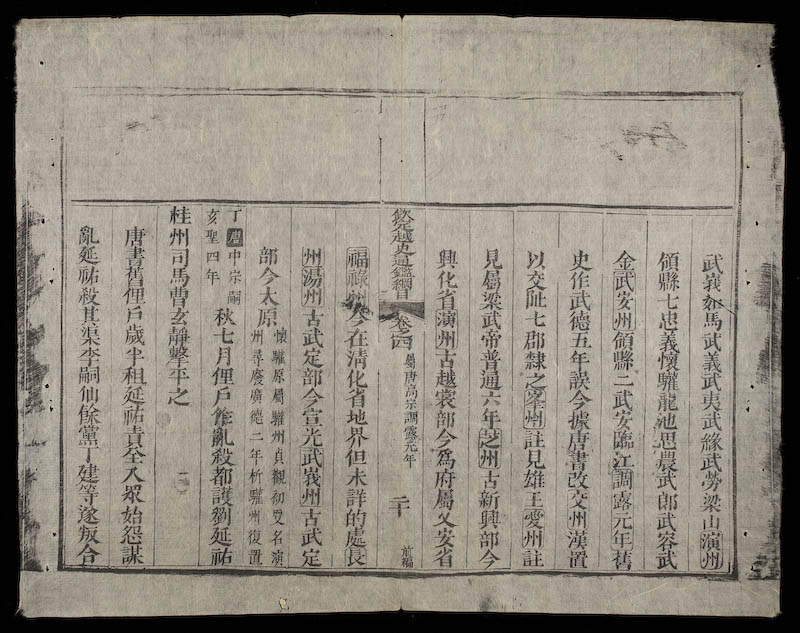 武峩如馬武義武夷武緣武勞梁山演州
領縣七忠義懷驩龍池思農武郎武容武
金武安州領縣二武安臨江調露元年舊
史作武德五年誤今據唐書改交州漢置
以交趾七郡隸之峯州註見雄王愛州註
見屬梁武帝普通六年芝州古新興部今
興化省演州古越裳部今爲府屬乂安省
欽定越史通鑑綱目 卷之四 屬唐高宗調露元年 二十 前編
福祿州今在淸化省地界但未詳的處長
州湯州古武定部今宣光武峩州古武定
部今太原懷驩原屬驩州貞觀初更名演
州尋廢廣德二年析驩州復置
丁亥唐中宗嗣聖四年秋七月俚戶作亂殺都護劉延祐
桂州司馬曹玄靜擊平之
唐書舊俚戶歲半租延祐責全入眾始怨謀
亂延祐殺其渠李嗣仙餘黨丁建等遂叛合